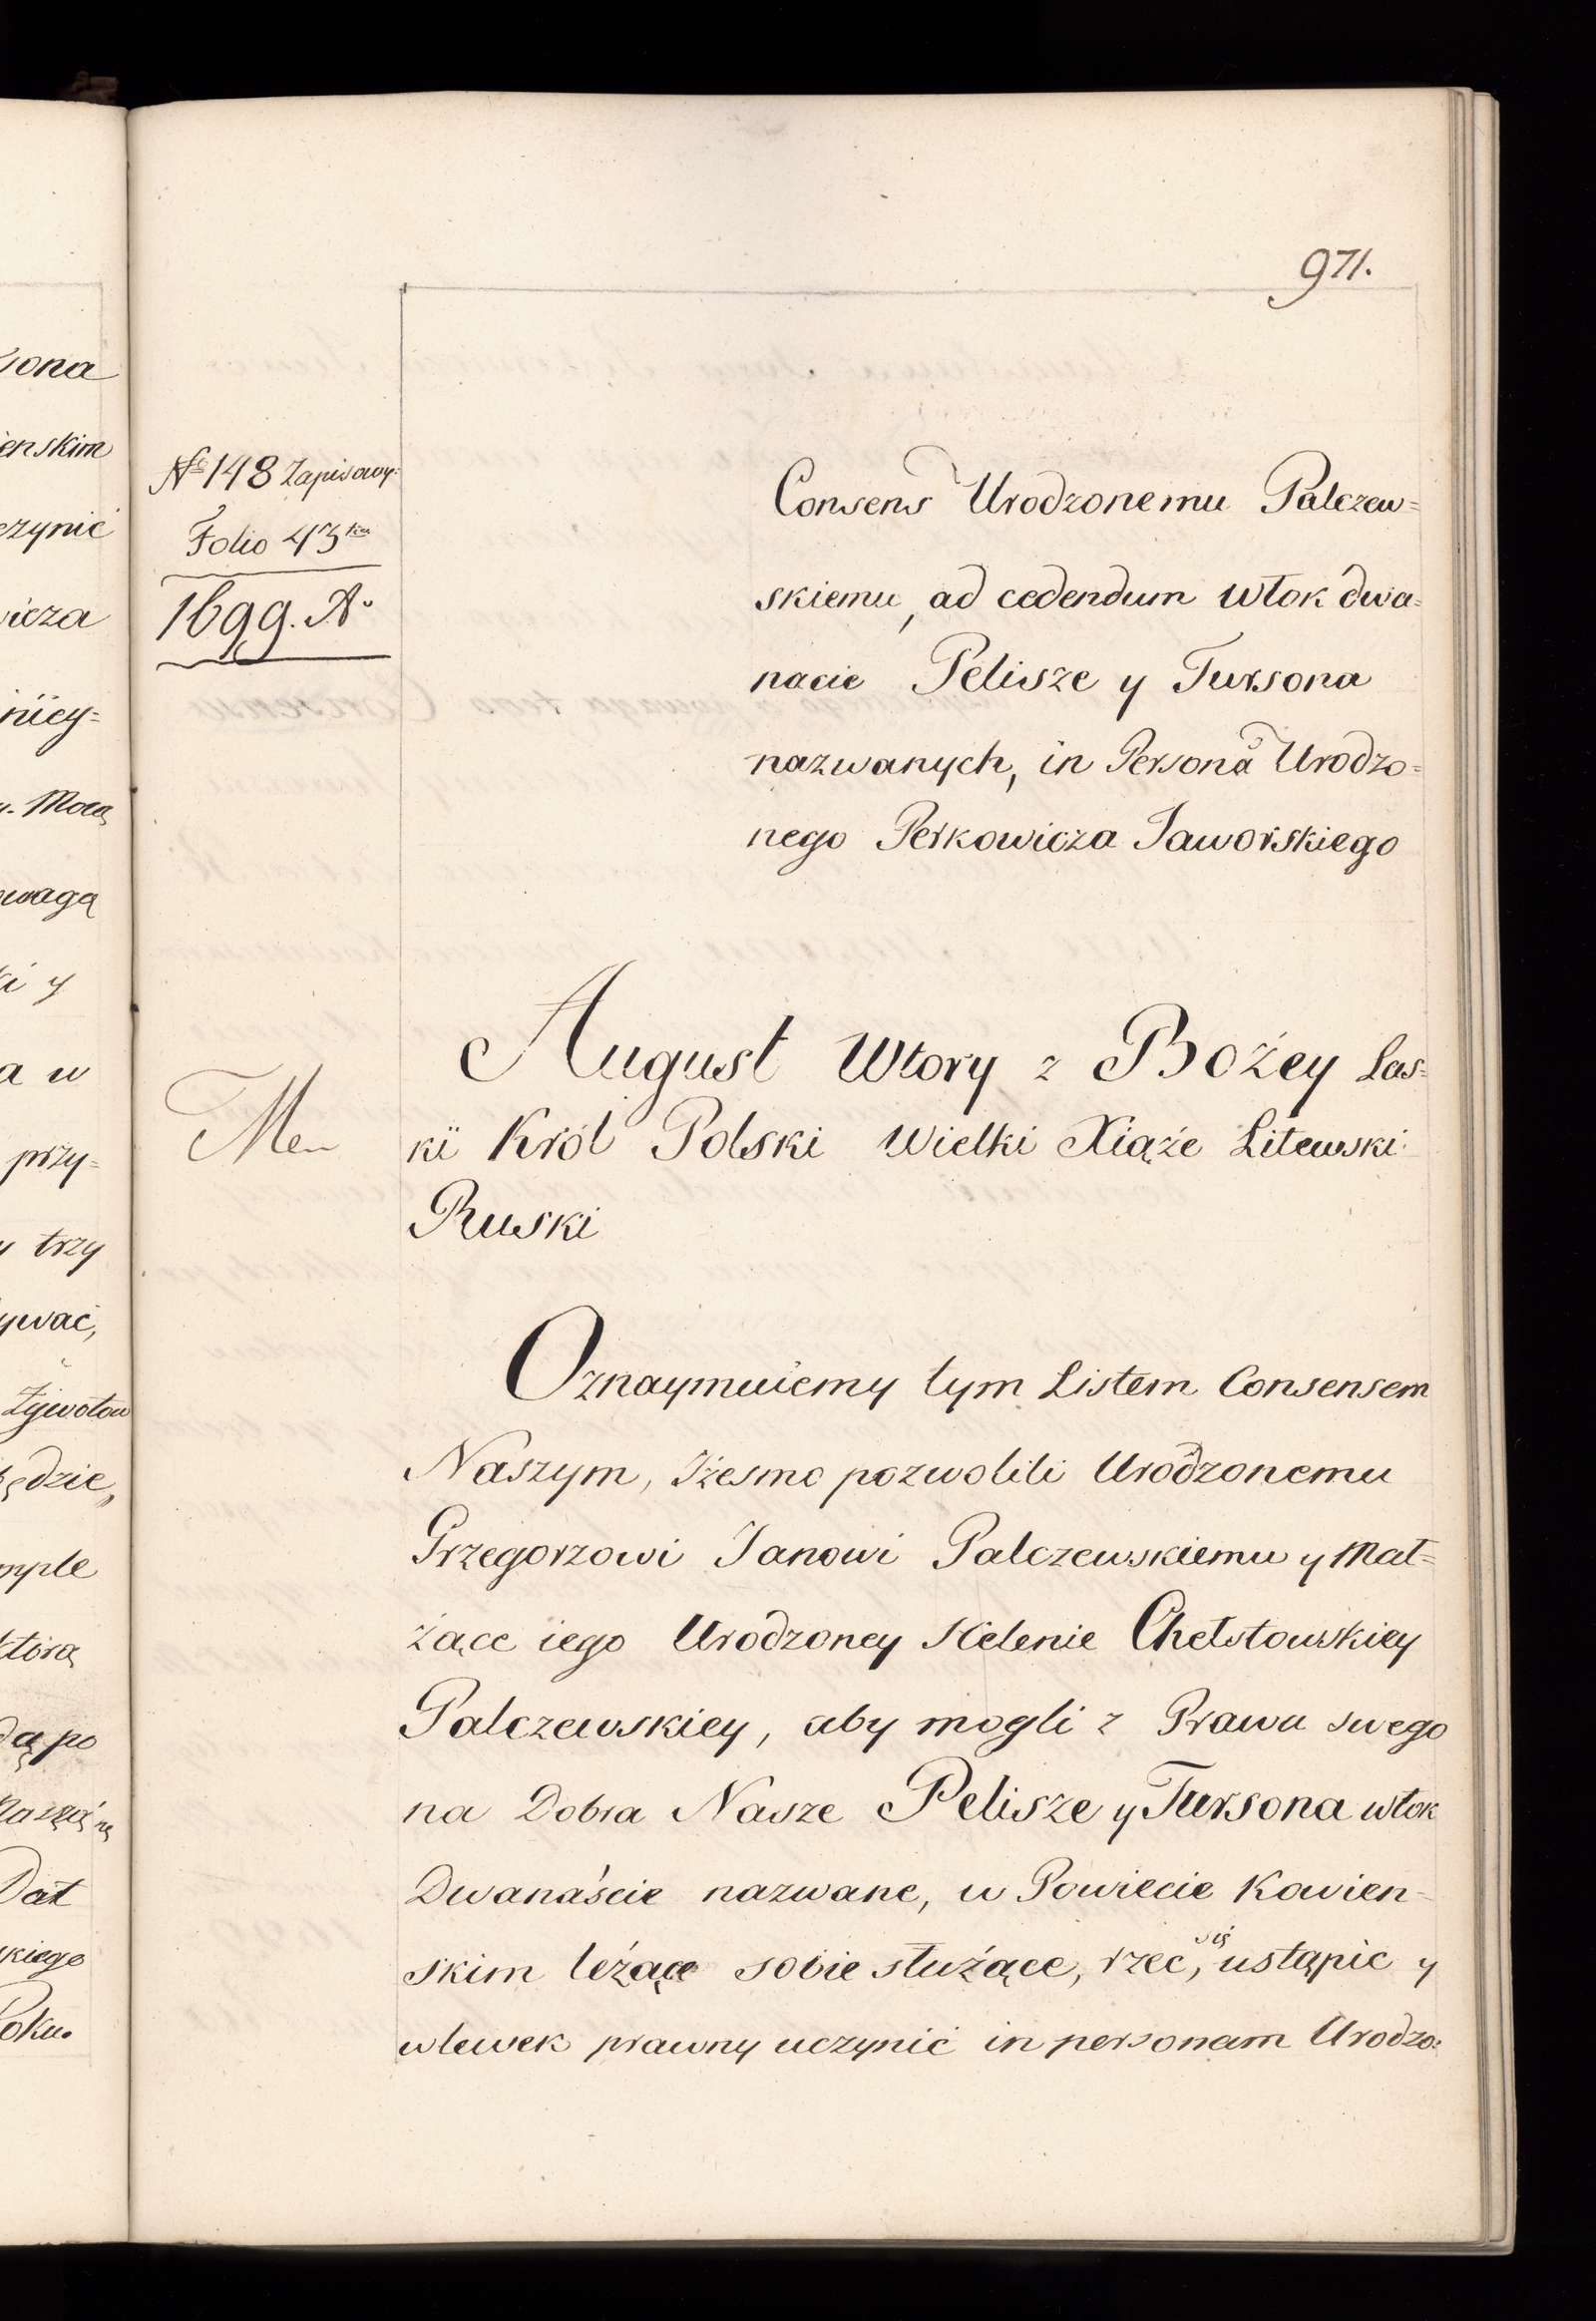 971.
sona
ienskim
czynić
wicza
nïcy=
y. Mocą
owagą
ki y
a w
przy=
y trzy
ywać,
Żywotow
będzie,,
mple
która
dą po
Dat
skiego
Roku.
№ 148 Zapisowy:
Folio 43
1699. Aº
Consens Urodzonemu Palczew=
skiemu, ad cedendum Włok dwa=
nacie Pelisze y Tursona
nazwanych, in Personã Urodzo=
nego Perkowicza Jaworskiego
August Wtory z Bożey Łas=
kï Król Polski Wielki Xiąże Litewski
Ruski
Oznaymuiemy tym Listem Consensem
Naszym, Iżesmo pozwolili Urodzonemu
Grzegorzowi Janowi Palczewskiemu y Mał=
żące iego Urodzoney Helenie Chełstowskiey
Palczewskiey, aby mogli z Prawa swego
na Dobra Nasze Pelisze y Tursona włok
Dwanaście nazwane, w Powiecie Kowien=
skim leżące sobie służące, rzec, się ustąpic y
wlewek prawny uczynić in personam Urodzo=